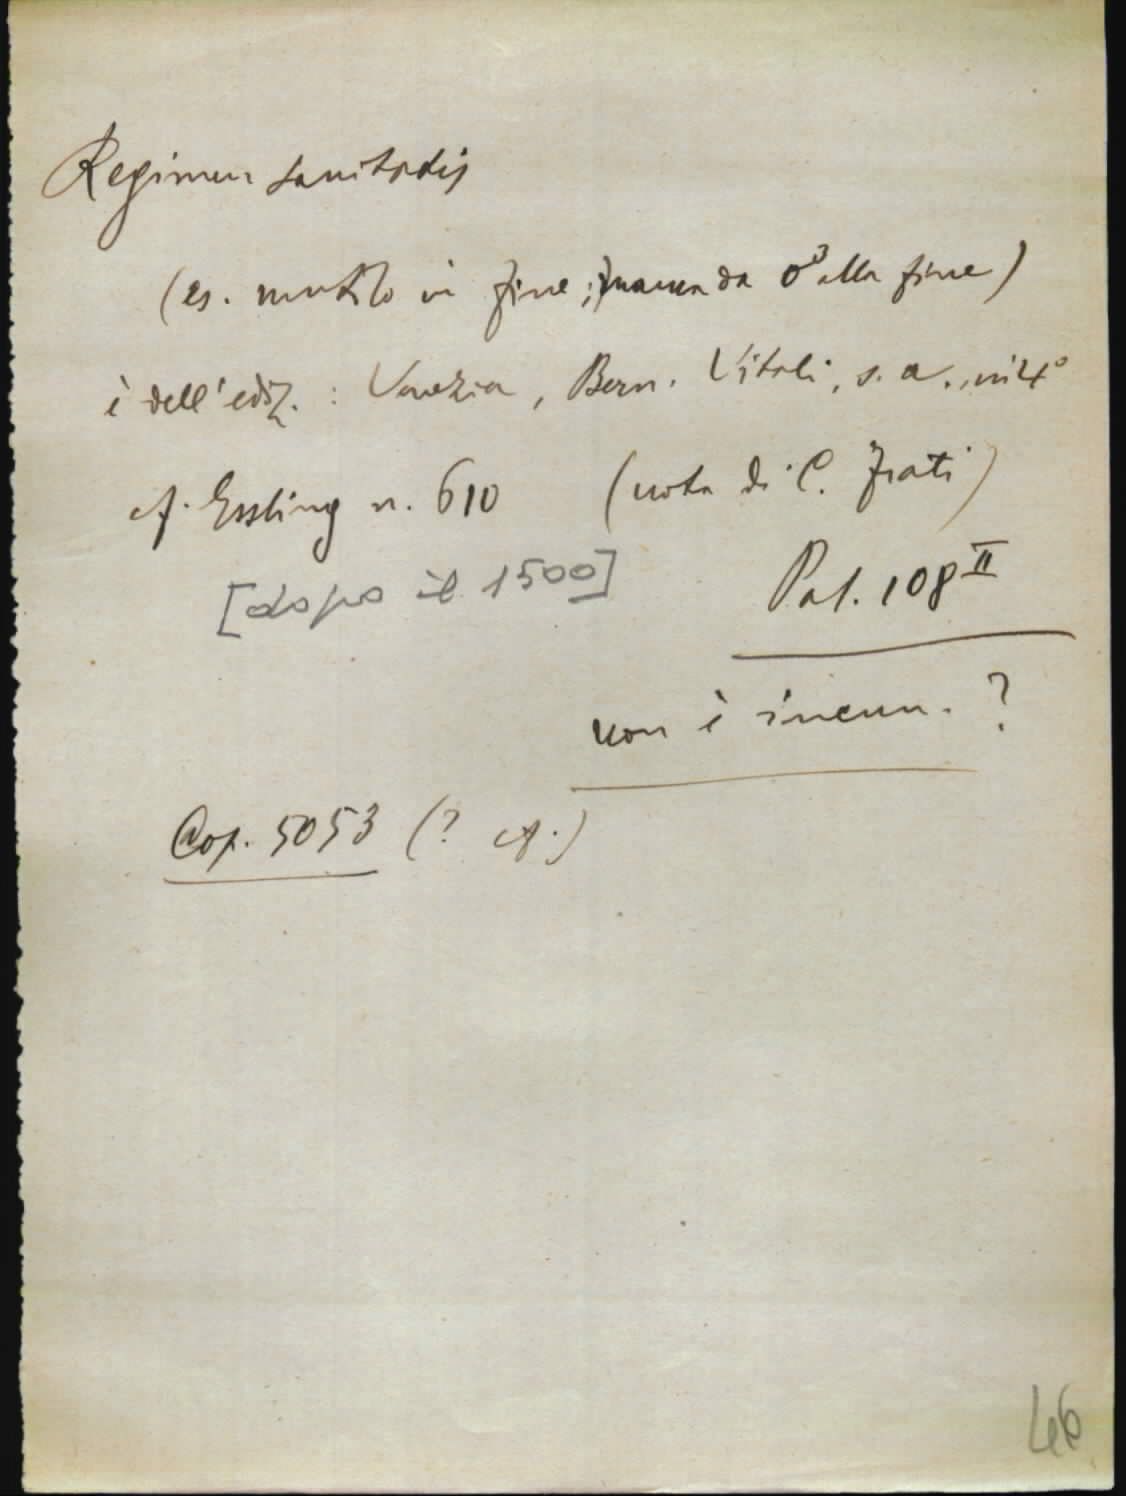 Regimen sanitatis
(es. mutilo in fine; manca da o³ alla fine)
è dell'ediz.: Venezia, Bern. Vitali, s. a., in 4°
cf. Essling n. 610 (nota di C. Frati)
[dopo il 1500]
Pal. 108 II
non è incun. ?
Cop. 5053 (? cf.)
46